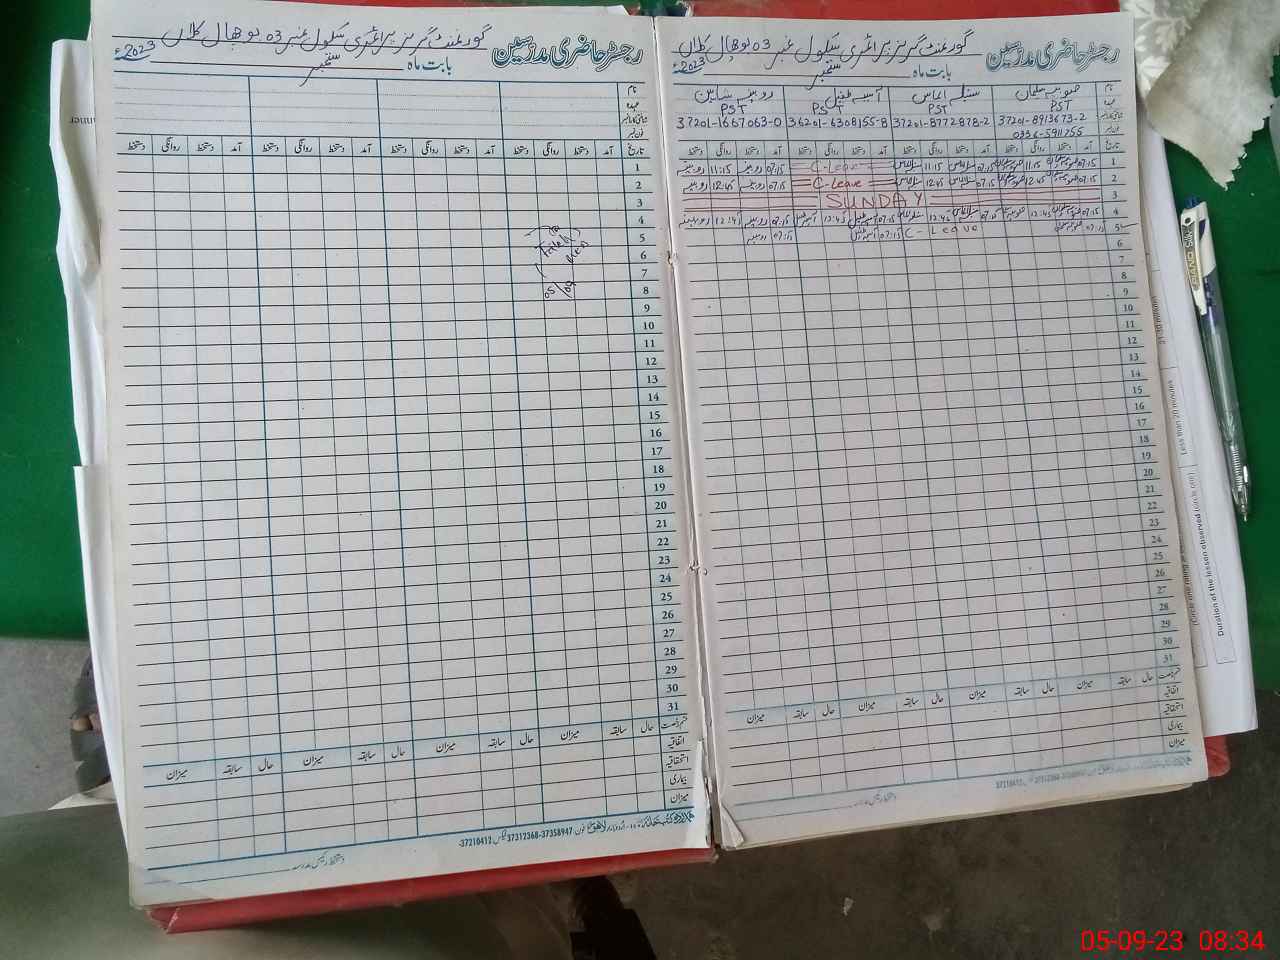 رجسٹر حاضری مدرسین گورنمنٹ گرلز پرائمری سکول نمبر 03 بوچھال کلاں
بابت ماہ ستمبر 2023ء
نام صوبیہ سلطان سنبلہ الماس آسیہ طفیل روبینہ شاہین
عہدہ PST PST PST PST
شناختی کارڈ نمبر 37201-8913673-2 37201-8772878-2 36201-6308155-8 37201-1667063-0
فون نمبر 0336-5911255
تاریخ آمد دستخط روانگی دستخط آمد دستخط روانگی دستخط آمد دستخط روانگی دستخط آمد دستخط روانگی دستخط
1 07:15 11:15 07:15 11:15 C-Leave 07:15 روبینہ 11:15 روبینہ
2 07:15 12:45 07:15 12:45 C-Leave 07:15 روبینہ 12:45 روبینہ
3 SUNDAY
4 07:15 12:45 07:15 12:45 07:15 12:45 07:15 روبینہ 12:45 روبینہ
5 07:15 C-Leave 07:15 07:15 روبینہ
6
7
8
9
10
11
12
13
14
15
16
17
18
19
20
21
22
23
24
25
26
27
28
29
30
31
قسم رخصت حال سابقہ میزان حال سابقہ میزان حال سابقہ میزان حال سابقہ میزان
اتفاقیہ
استحقاقیہ
بیماری
میزان
37210412
رجسٹر حاضری مدرسین گورنمنٹ گرلز پرائمری سکول نمبر 03 بوچھال کلاں
بابت ماہ ستمبر 2023ء
نام
عہدہ
شناختی کارڈ نمبر
فون نمبر
تاریخ آمد دستخط روانگی دستخط آمد دستخط روانگی دستخط آمد دستخط روانگی دستخط آمد دستخط روانگی دستخط
1
2
3
4
5
6
7
8
9
10
11
12
13
14
15
16
17
18
19
20
21
22
23
24
25
26
27
28
29
30
31
قسم رخصت حال سابقہ میزان حال سابقہ میزان حال سابقہ میزان حال سابقہ میزان
اتفاقیہ
استحقاقیہ
بیماری
میزان
اردو بازار لاہور فون: 37358947-37312368 فیکس 37210412
دستخط رئیس مدرسہ
21-30 minutes
Less than 20 minutes
Duration of the lesson observed
05-09-23 08:34